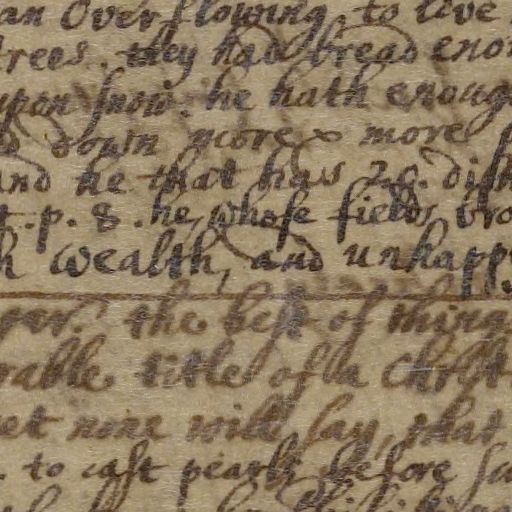 an over flowing, to live
trees. they had bread eno
upon snow. he hath enoug
down more & more
and he that has 20. dish
t. p. 8. he, whose fields bro
h wealth, and unhappy
the best of thing
rable title of a Christ
et none will say, that
. to cast pearls before sw